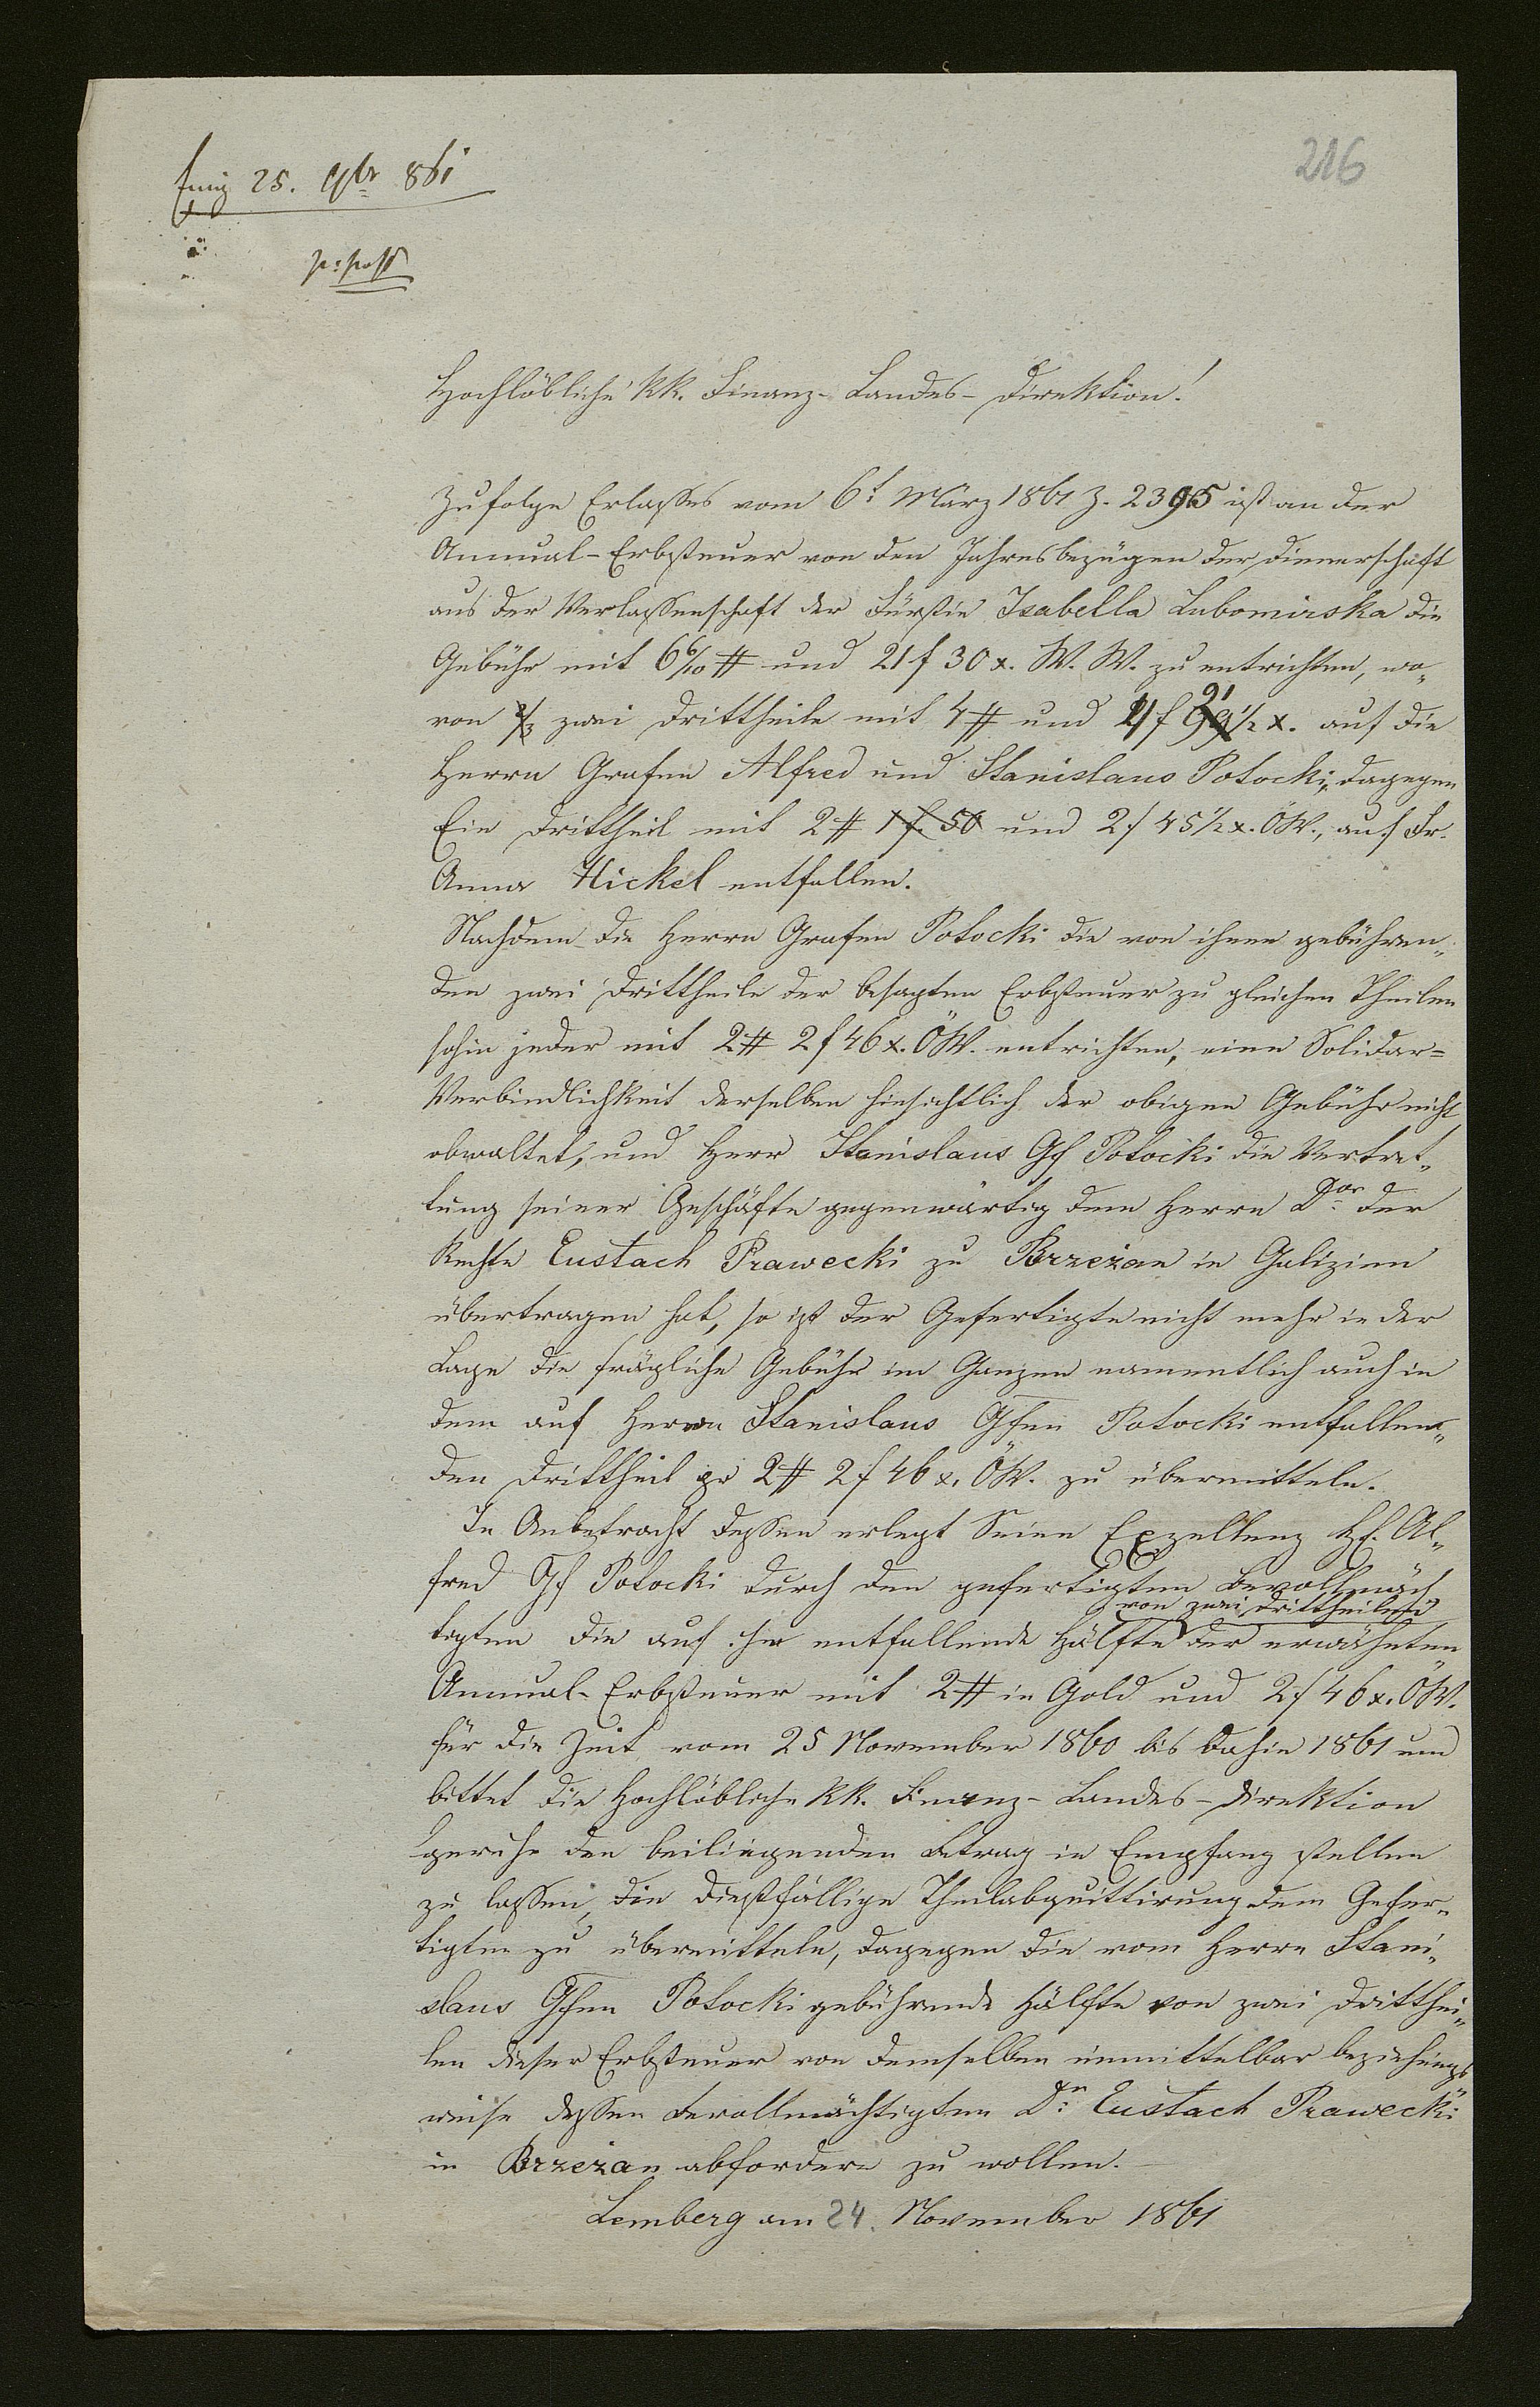 25. 9br 861
216
p: post
Hochlöbliche kk. Finanz- Landes- Direktion!
Zufolge Erlaßes vom 6t März 1861 Z. 2395 ist an der
Annual-Erbsteuer von den Jahresbezügen der Dienerschaft
aus der Verlassenschaft der Fürstin Isabella Lubomirska die
Gebühr mit 6 6/10 # und 21 f 30 x. W. W. zu entrichten, wo„
von 2/3 zwei Drittheile mit 4 # und 4 f 91 1/2 x. auf die
Herrn Grafen Alfred und Stanislaus Potocki, dagegen
Ein Drittheil mit 2 # 1 f. 50 und 2 f 45 1/2 x. ÖW., auf Fr.
Anna Hickel entfallen.
Nachdem die Herrn Grafen Potocki die von ihnen gebühren„
den zwei Drittheile der besagten Erbsteuer zu gleichen Theilen
sohin jeder mit 2 # 2 f 46 x. ÖW. entrichten, eine Solidar=
Verbindlichkeit derselben hinsichtlich der obigen Gebühr nicht
obwaltet, und Herr Stanislaus Gf Potocki die Vertret„
tung seiner Geschäfte gegenwärtig dem Herrn Dor der
Rechte Eustach Prawecki zu Brzeżan in Galizien
übertragen hat, so ist der Gefertigte nicht mehr in der
Lage die frägliche Gebühr im Ganzen namentlich auch in
dem auf Herrn Stanislaus Gfen Potocki entfallen„
den Drittheil pr 2 # 2 f 46 x. ÖW. zu übermitteln.
In Anbetracht dessen erlegt Seine Exzellenz H. Al„
fred Gf Potocki durch den gefertigten Bevollmäch
von zwei Drittheilen
tigten die auf ihn entfallende Hälfte der erwähnten
Annual-Erbsteuer mit 2 # in Gold und 2 f 46 x. ÖW.
für die Zeit vom 25 November 1860 bis dahin 1861 und
bittet die Hochlöbliche kk. Finanz- Landes- Direktion
geruhe den beiliegenden Betrag in Empfang stellen
zu lassen, die dießfällige Theilabquittirung dem Gefer„
tigten zu übermitteln, dagegen die vom Herrn Stani„
slaus Gfen Potocki gebührende Hälfte von zwei Dritthei„
len dieser Erbsteuer von demselben unmittelbar beziehungs
weise dessen Bevollmächtigten Dr Eustach Prawecki
in Brzeżan abfordern zu wollen.
Lemberg am 24. November 1861